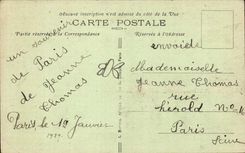 Aucune inscription n'est admise du côté de la Vue
CARTE POSTALE
Partie réservée à la Correspondance
Réservée à l'Adresse
un souvenir
de Paris
de Jeanne
Thomas
Paris, le 19 Janvier
envoi de
Mademoiselle
Jeanne Thomas
rue
hérold No
Paris
Seine